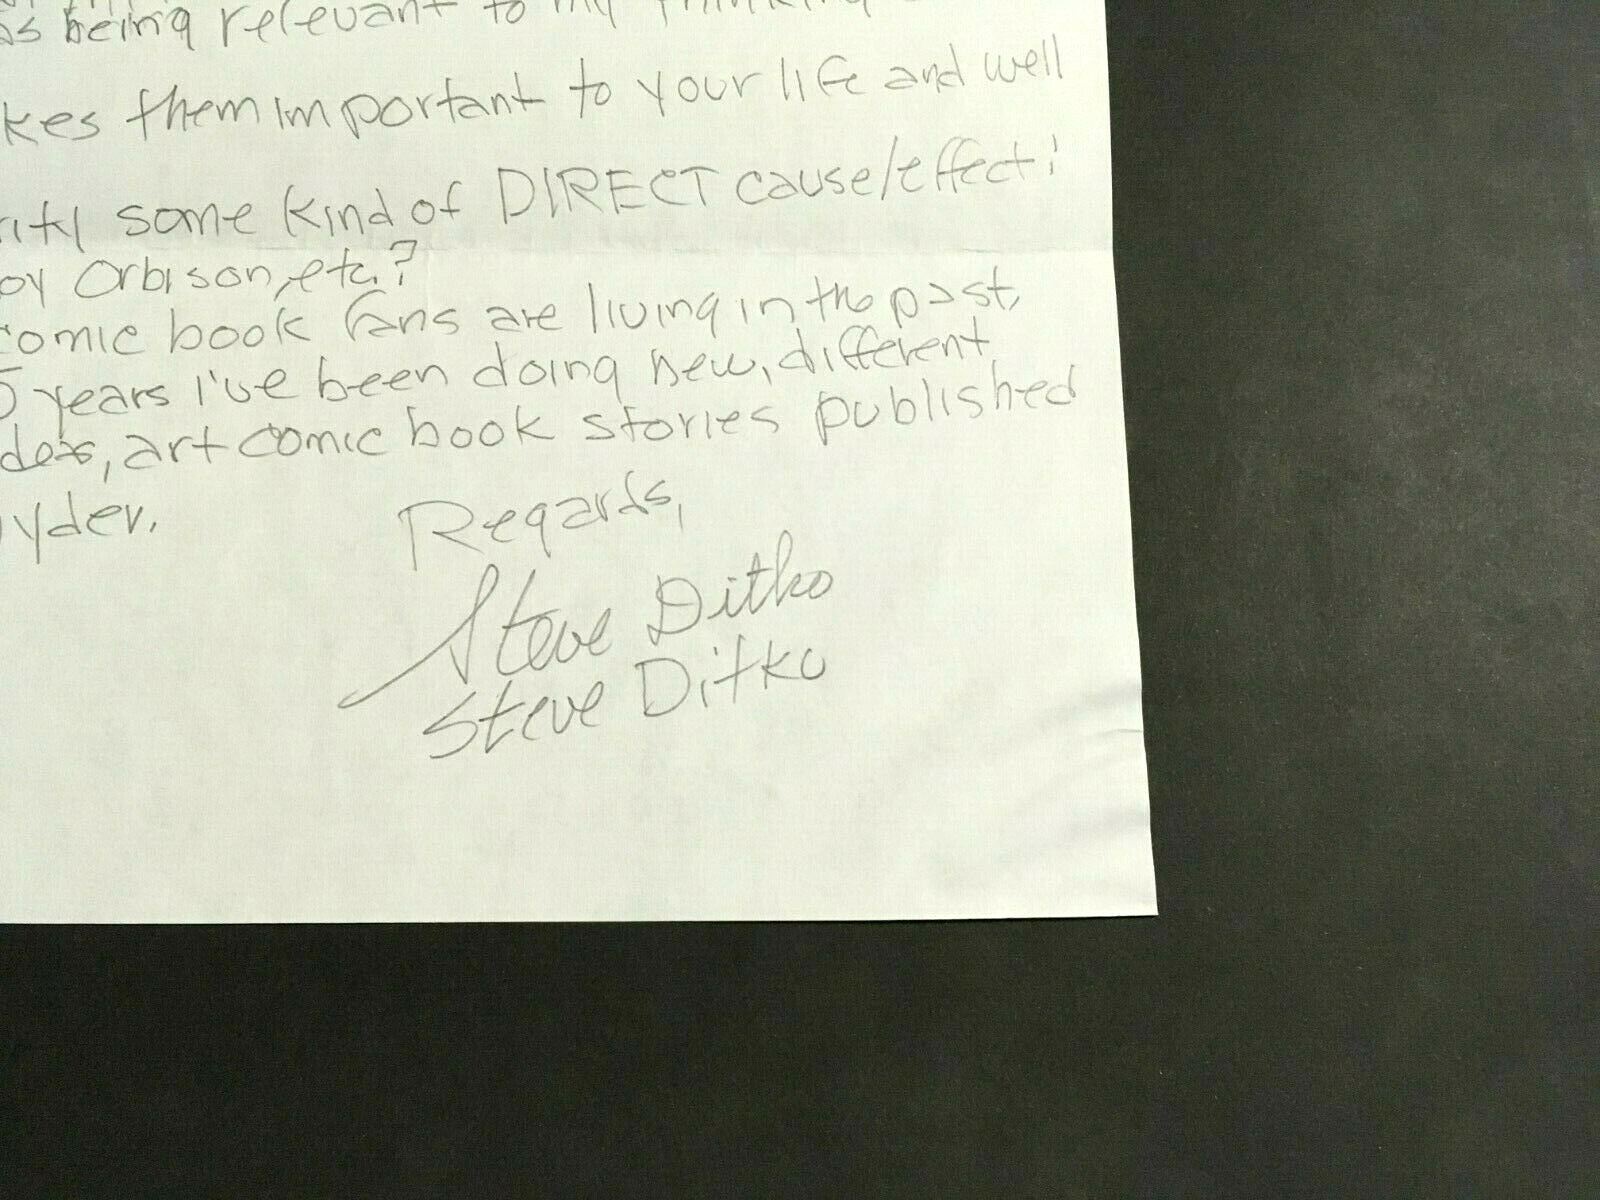 as being relevant to my thinking
kes them important to your life and well
some kind of DIRECT cause/effect!
oy Orbison, etc.?
comic book fans are living in the past,
5 years I've been doing new, different,
art comic book stories published
yder.
Regards,
Steve Ditko
Steve Ditko